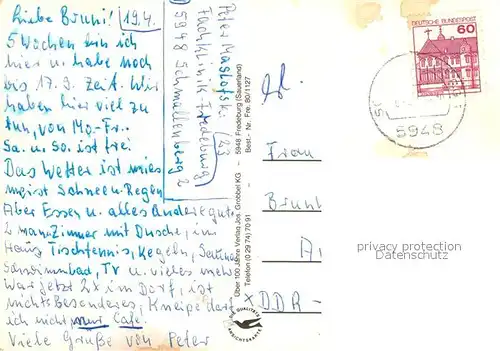 Liebe Bruni! 19.4.
5 Wochen bin ich
hier u. habe noch
bis 17.9. Zeit. Wir
haben hier viel zu
tun, von Mo.-Fr.
Sa. u. So. ist frei
Das Wetter ist mies
meist Schnee u. Regen
Aber Essen u. alles Andere gut.
2 mann Zimmer mit Dusche, im
Haus Tischtennis, Kegeln, Sauna
Schwimmbad, TV u. vieles mehr
War jetzt 2x im Dorf, ist
nichts Besonderes, Kneipe darf
ich nicht nur Cafe.
Viele Grüße von Peter
Peter
Fachklinik Fredeburg
5948 Schmallenberg 2
Über 100 Jahre Verlag Jos. Grobbel KG
Telefon (0 29 74) 70 91
5948 Fredeburg (Sauerland)
Best.-Nr. Fre. 80/1127
DEUTSCHE BUNDESPOST
60
5948
Frau
DDR-
privacy protection
Datenschutz